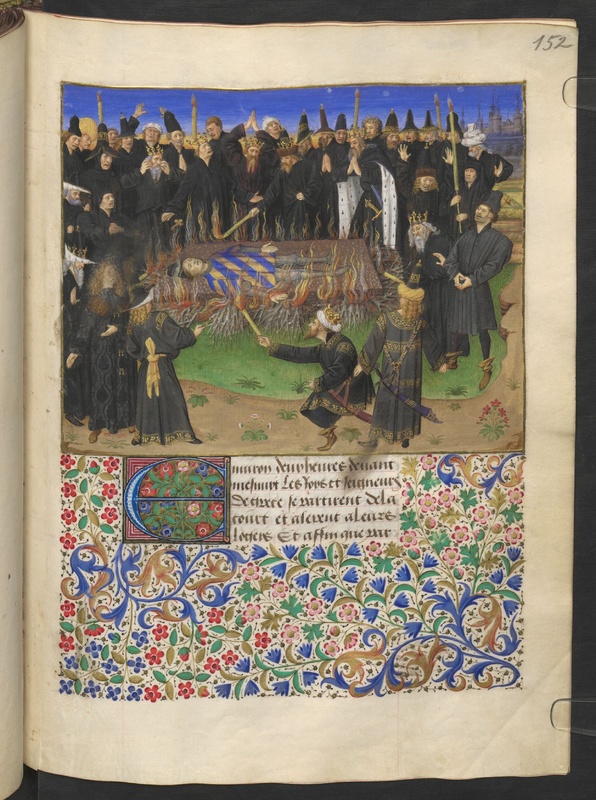 152
Enuiron deux heures deuant
mesnuyt Les Roys et seigneurs
de grece se partirent de la
court et alerent a leurs
logeis Et affin que par